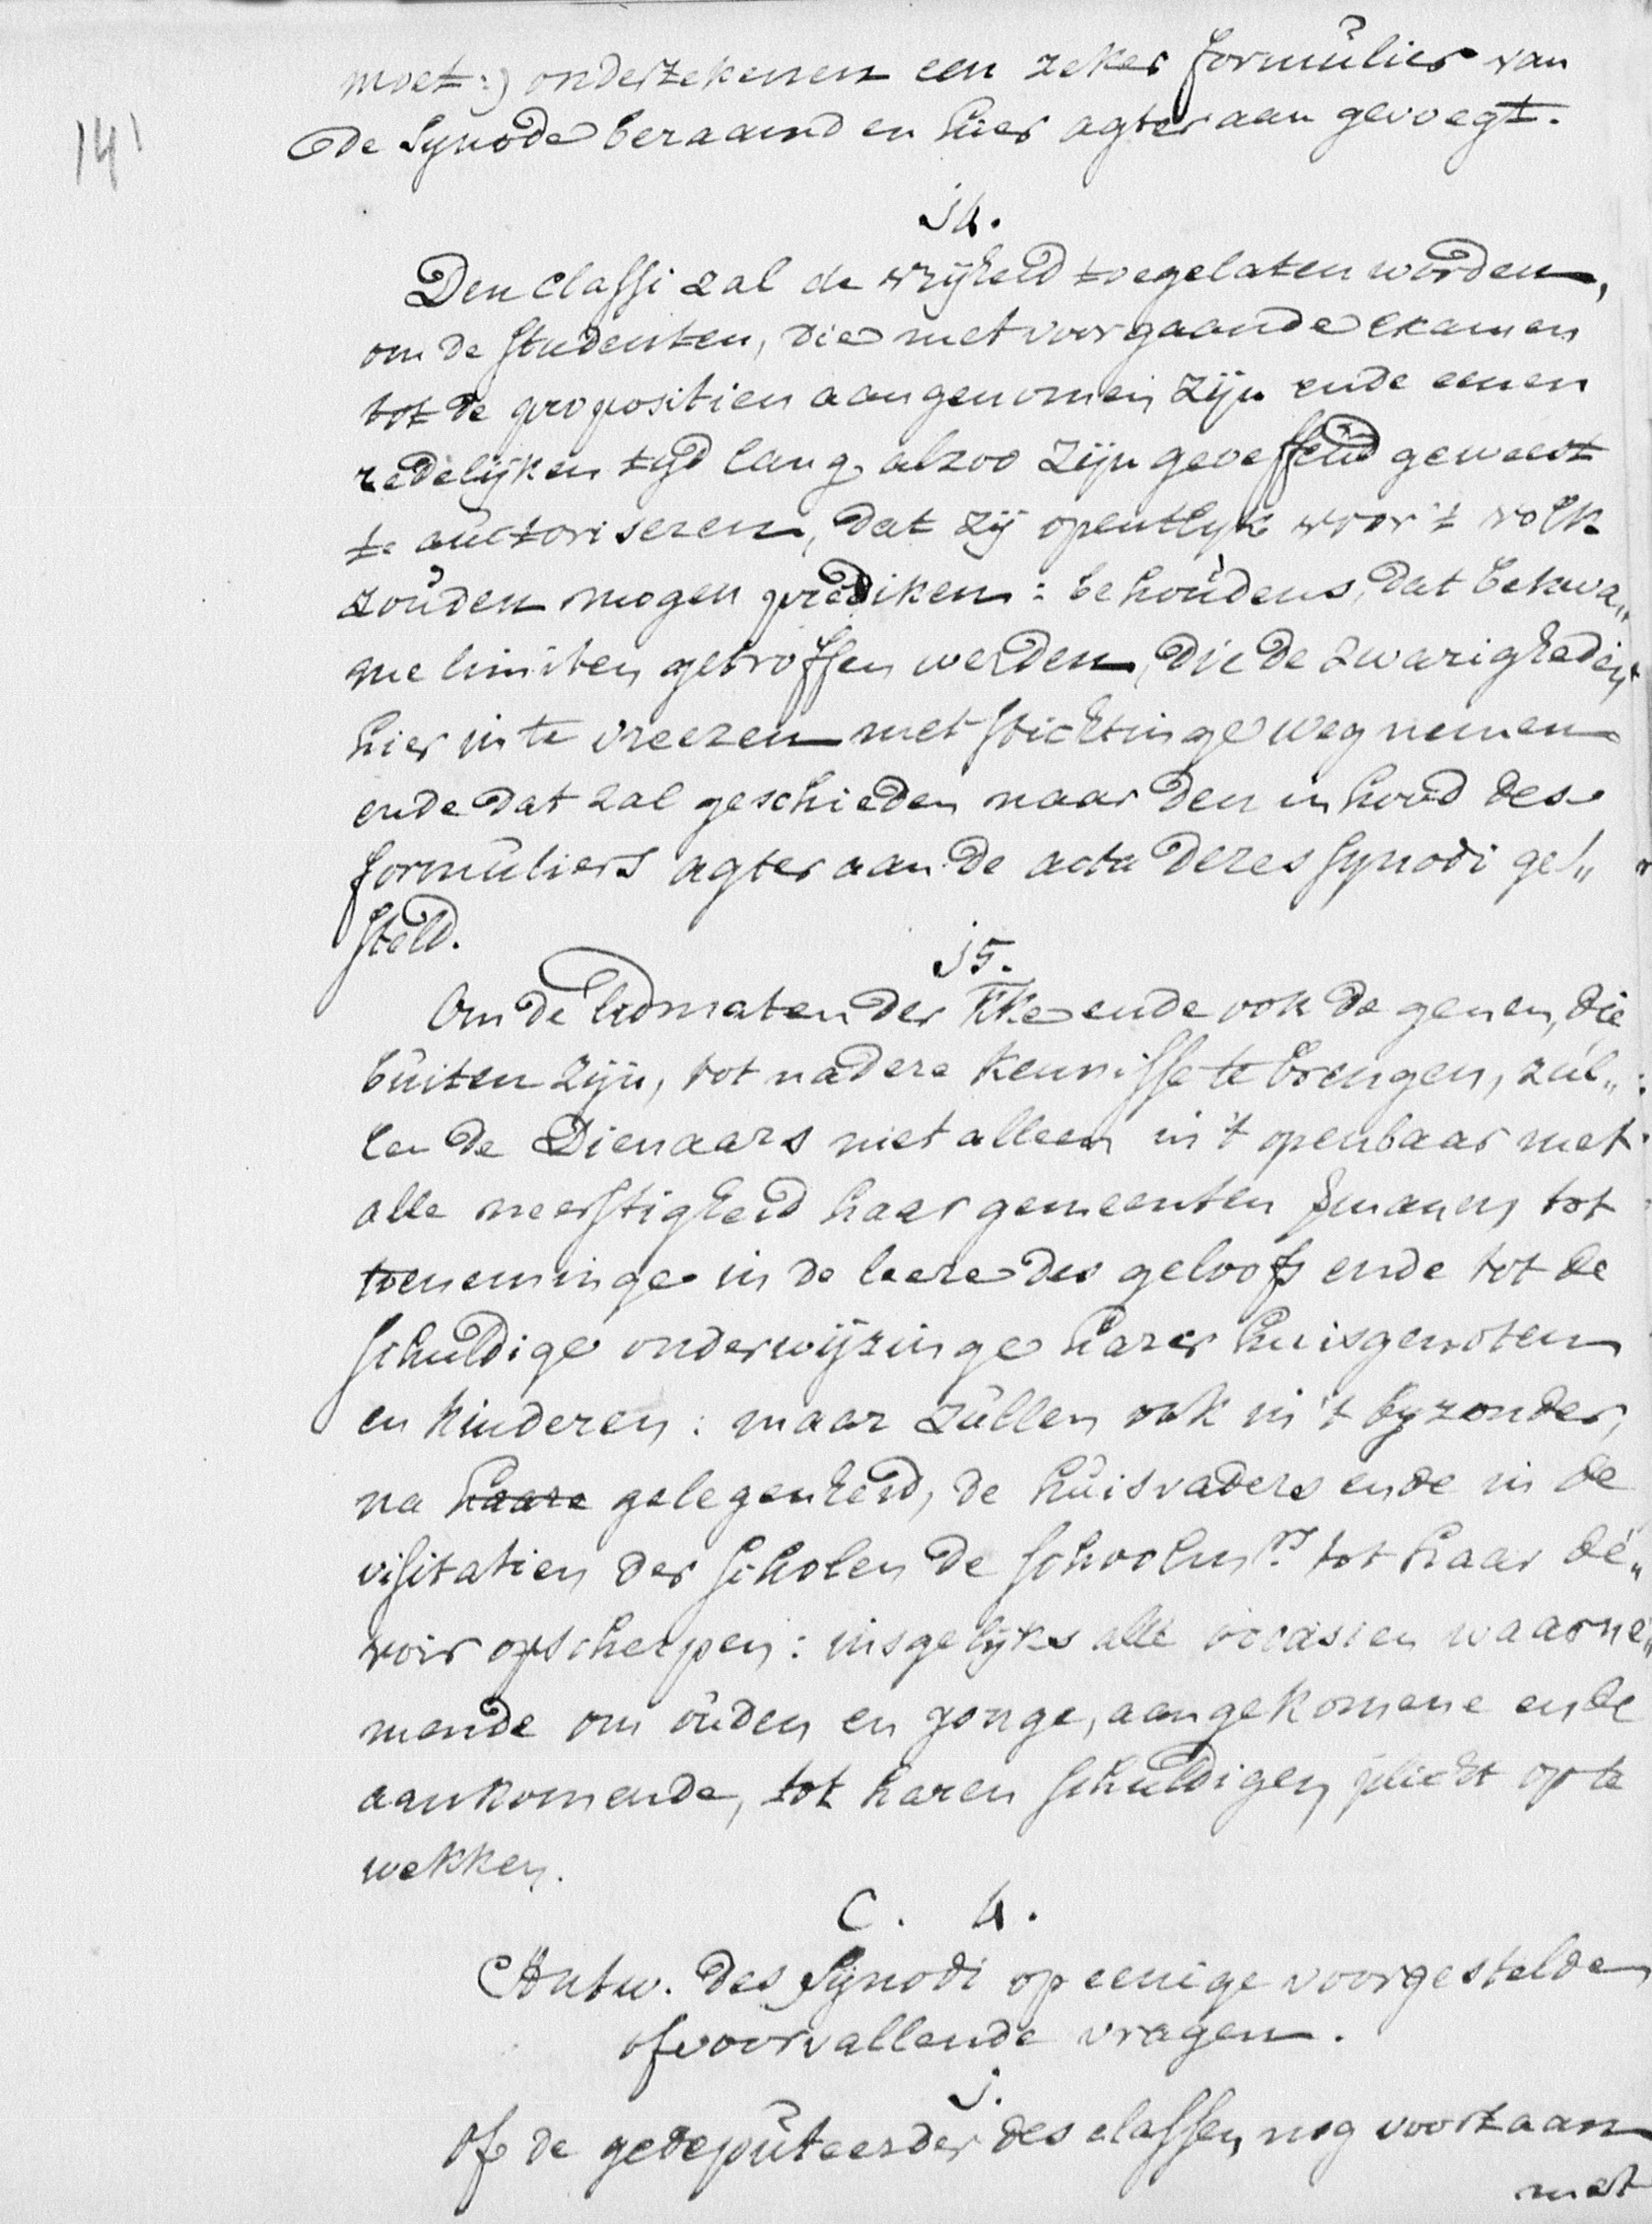 moet:) onderteekenen een zeker formulier van
14'
de Synode beraamd en hier agter aan gevoegt.
14.
Den Classi zal de vrijheid toegelaten worden,
om de studenten, die met voorgaande examen
tot de propositien aangenomen zijn ende eenen
redelijken tijd lang alzoo zijn geoeffend geweest
te auctoriseren, dat zij opentlijk voor 't volk
zouden mogen prediken: behoudens, dat bekwa„
me limiten getroffen werden, die de zwarigheden
hier in te vreezen met stichtinge weg nemen
ende dat zal geschieden naar den inhoud des
formuliers agter aan de acta dezes synodi ge„
steld.
15.
Om de lidmaten der Kke ende ook de genen, die
buiten zijn, tot nadere kennisse te brengen, zul„
len de Dienaars niet alleen in 't openbaar met
alle neerstigheid haar gemeenten vermanen tot
toeneminge in de leere des geloofs ende tot de
schuldige onderwijzinge harer huisgenoten
en kinderen: maar zullen ook in 't byzonder,
na haare gelegenheid, de huisvaders ende in de
visitatien der scholen de schoolmrs tot haar de„
voir opscherpen: insgelijks alle occasien waarne„
mende om ouden en jonge, aangekomene ende
aankomende, tot haren schuldigen plicht op te
wekken.
C. 4.
Antw. des Synodi op eenige voorgestelde
of voorvallende vragen.
1.
Of de gedeputeerder des classen nog voortaan
met